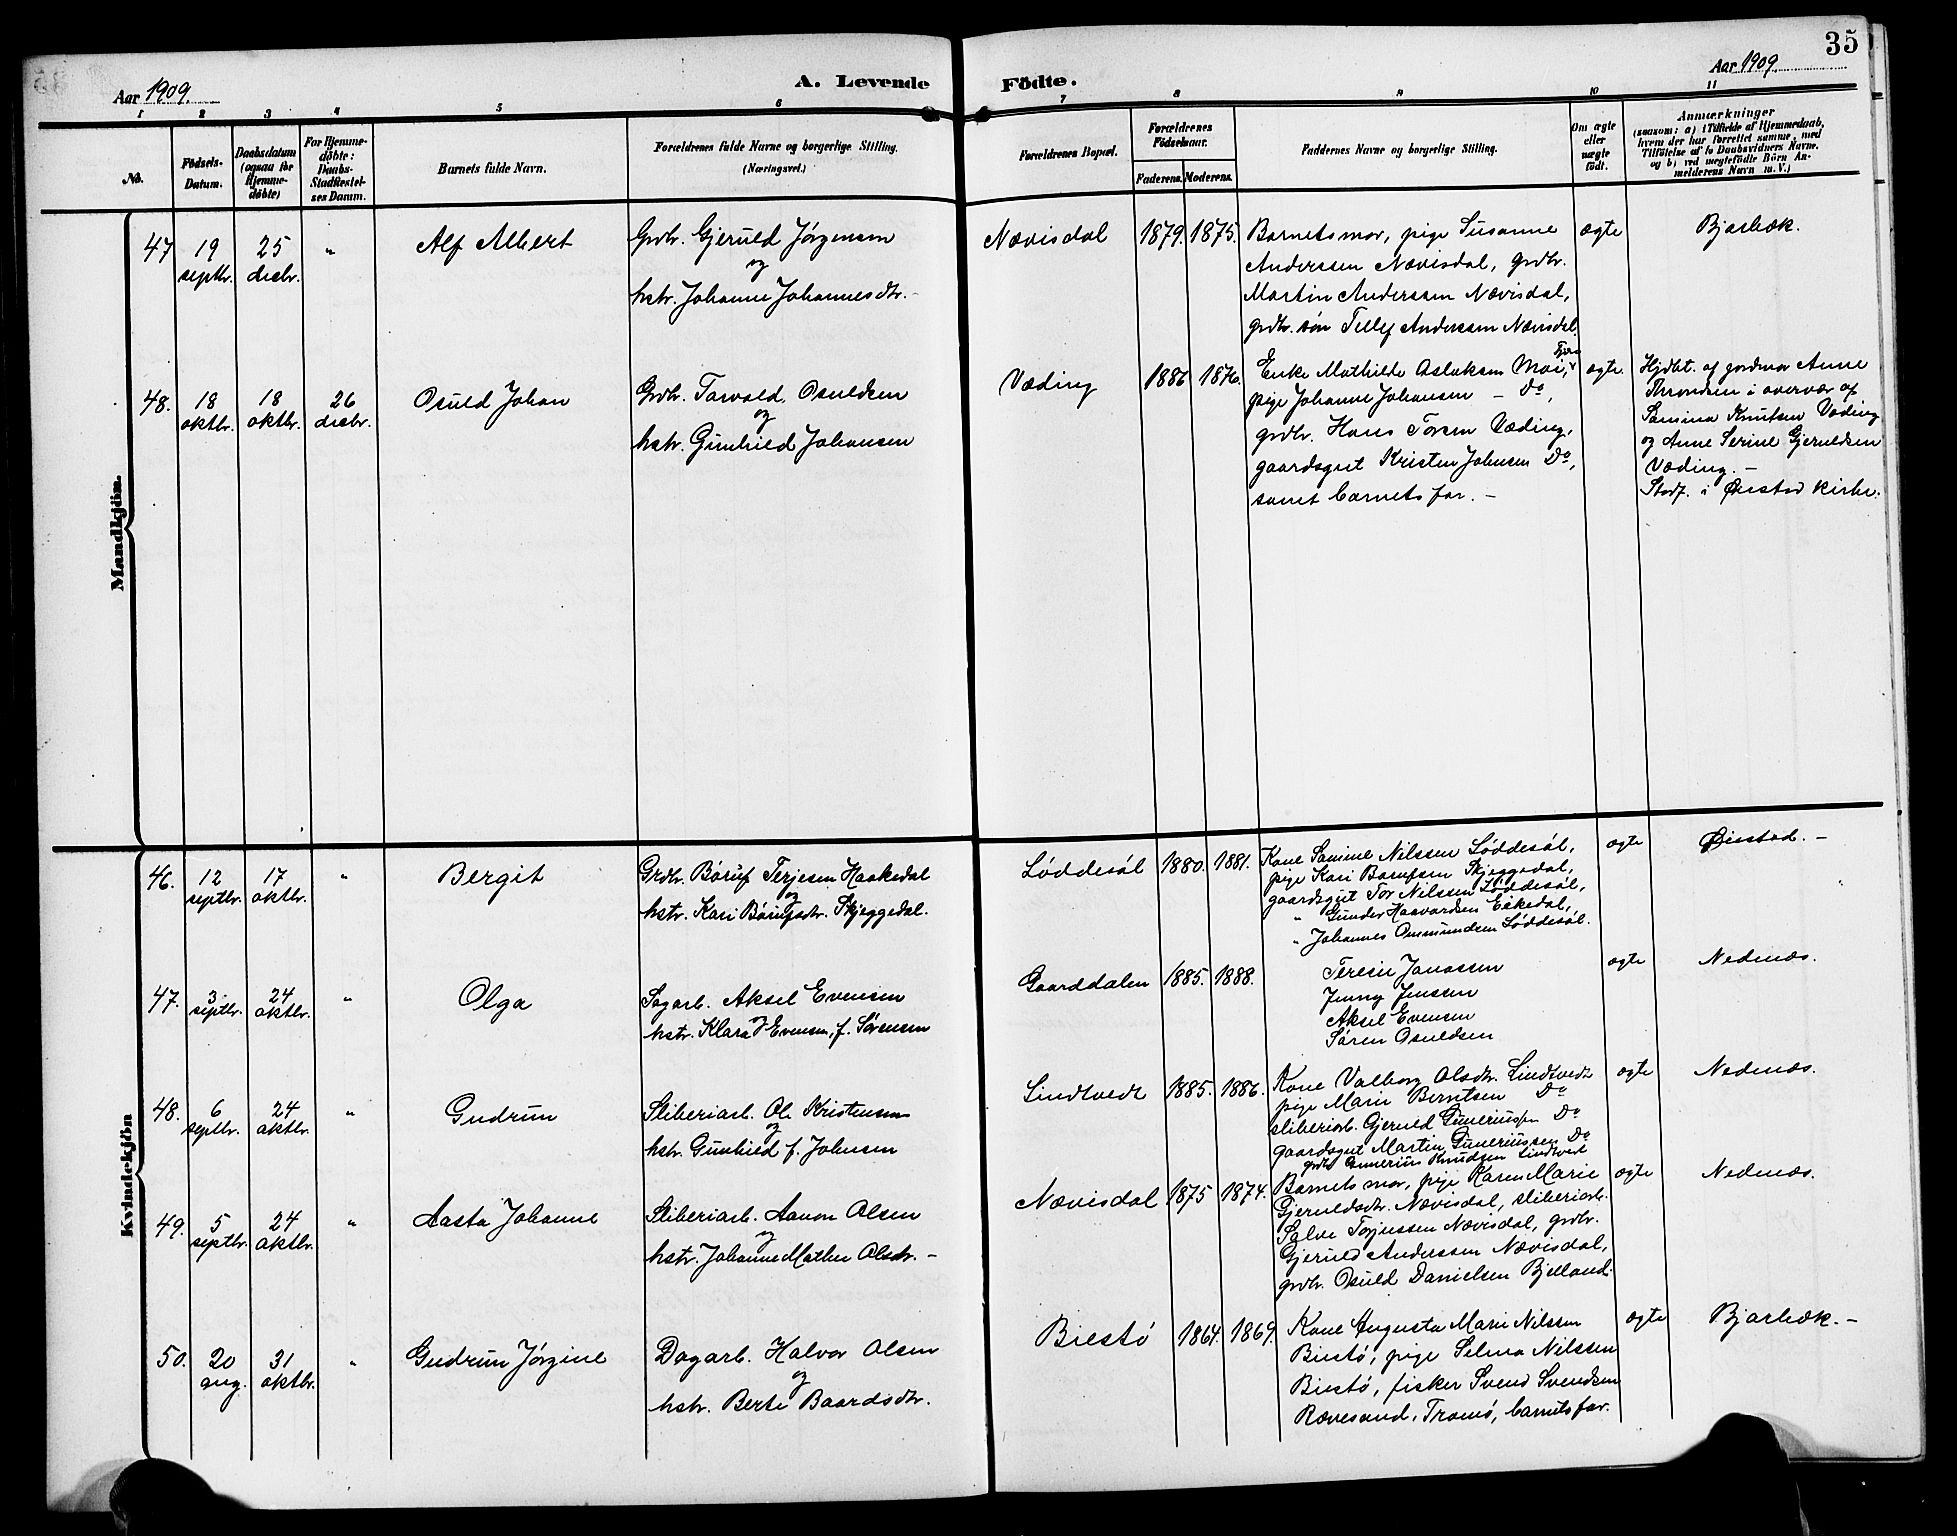 35
Aar 1909.
A. Levende
Födte.
Aar 1909
1 2 3 4 5 6 7 8 9 10 11
No.
Födsels-Datum.
Daabsdatum (ogsaa for Hjemmedöbte)
For Hjemmedöbte: Daabs-Stadfæstelses Datum.
Barnets fulde Navn.
Forældrenes fulde Navne og borgerlige Stilling.
(Næringsvei.)
Forældrenes Bopæl.
Forældrenes Födselsaar.
Faderens. Moderens.
Faddernes Navne og borgerlige Stilling.
Om ægte eller uægte födt.
Anmærkninger
(saasom: a) i Tilfælde af Hjemmedaab,
hvem der har forrettet samme, med
Tilföielse af to Daabsvidners Navne.
og b) ved uægtefödte Börn Anmelderens Navn m. V.)
Mandkjön.
47 19 septbr. 25 decbr. " Alf Albert
Grdbr. Gjeruld Jørgensen
og
hstr. Johanne Johannesdtr. -
Nævisdal 1879. 1875.
Barnets mor, pige Susanne
Anderssen Nævisdal, grdbr.
Martin Anderssen Nævisdal,
grdbr. søn Tellef Anderssen Nævisdal
ægte Bjorbæk.
48. 18 oktbr. 18 oktbr. 26 decbr. Osuld Johan
Grdbr. Torvald Osuldsen
og
hstr. Gunhild Johansen
Væding 1886 1876.
Enke Mathilde Aslaksen Moi,
pige Johanne Johansen - Do,
grdbr. Hans Torsen Væding,
gaardsgut Kristen Johnsen Do,
samt barnets far. -
ægte.
Hjdbt. af gordmor Anne
Throndsen i overvær af
Samina Knutsen Væding
og Anne Serine Gjeruldsen
Væding. -
Stadf. i Øiestad kirke.
Kvindekjön
46. 12 septbr. 17 oktbr. " Bergit
Grdbr. Børuf Terjesen Haakedal
og
hstr. Kari Børufsdtr. Skjeggedal.
Løddesøl 1880. 1881.
Kone Samine Nilssen Løddesøl,
pige Kari Børufsen Skjeggedal,
gaardsgut Tor Nilssen Løddesøl,
" Gunder Haavordsen Eikedal,
" Johannes Ommundsen Løddesøl.
ægte Øiestad. -
47. 3 septbr. 24 oktbr. " Olga
Sagarb. Aksel Evensen
og
hstr. Klara Evensen, f. Sørensen
Gaarddalen 1885. 1888.
Teresie Jonassen
Jenny Jenssen
Aksel Evensen
Søren Osuldsen
ægte Nedenæs.
48. 6 septbr. 24 oktbr. " Gudrun
Sliberiarb. Ole Kristensen
og
hstr. Gunhild f. Johnsen
Lindtvedt 1885. 1886.
Kone Valborg Olsdtr. Lindtvedt
pige Marie Berntsen Do
sliberiarb. Gjeruld Guneriussen Do
gaardsgut Martin Guneriussen Do
grdbr Gunerius Knudsen Lindtvedt
ægte Nedenæs.
49. 5 septbr. 24 oktbr. " Aasta Johanne
Sliberiarb. Aanon Olsen
og
hstr. Johanne Mathea Olsdtr. -
Nævisdal 1875 1874.
Barnets mor, pige Karen Marie
Gjeruldsdtr. Nævisdal, sliberiarb.
Salve Torjussen Nævisdal, grdbr.
Gjeruld Anderssen Nævisdal,
grdbr. Osuld Danielsen Bjelland.
ægte Nedenæs.
50. 20 aug. 31 oktbr. " Gudrun Jørgine
Dagarb. Halvor Olsen
og
hstr. Berte Baardsdtr.
Biestø 1864. 1869.
Kone Augusta Marie Nilssen
Biestø, pige Selma Nilssen
Biestø, fisker Svend Svendsen
Rævesand, Tromø, barnets far.
ægte Bjorbæk. -